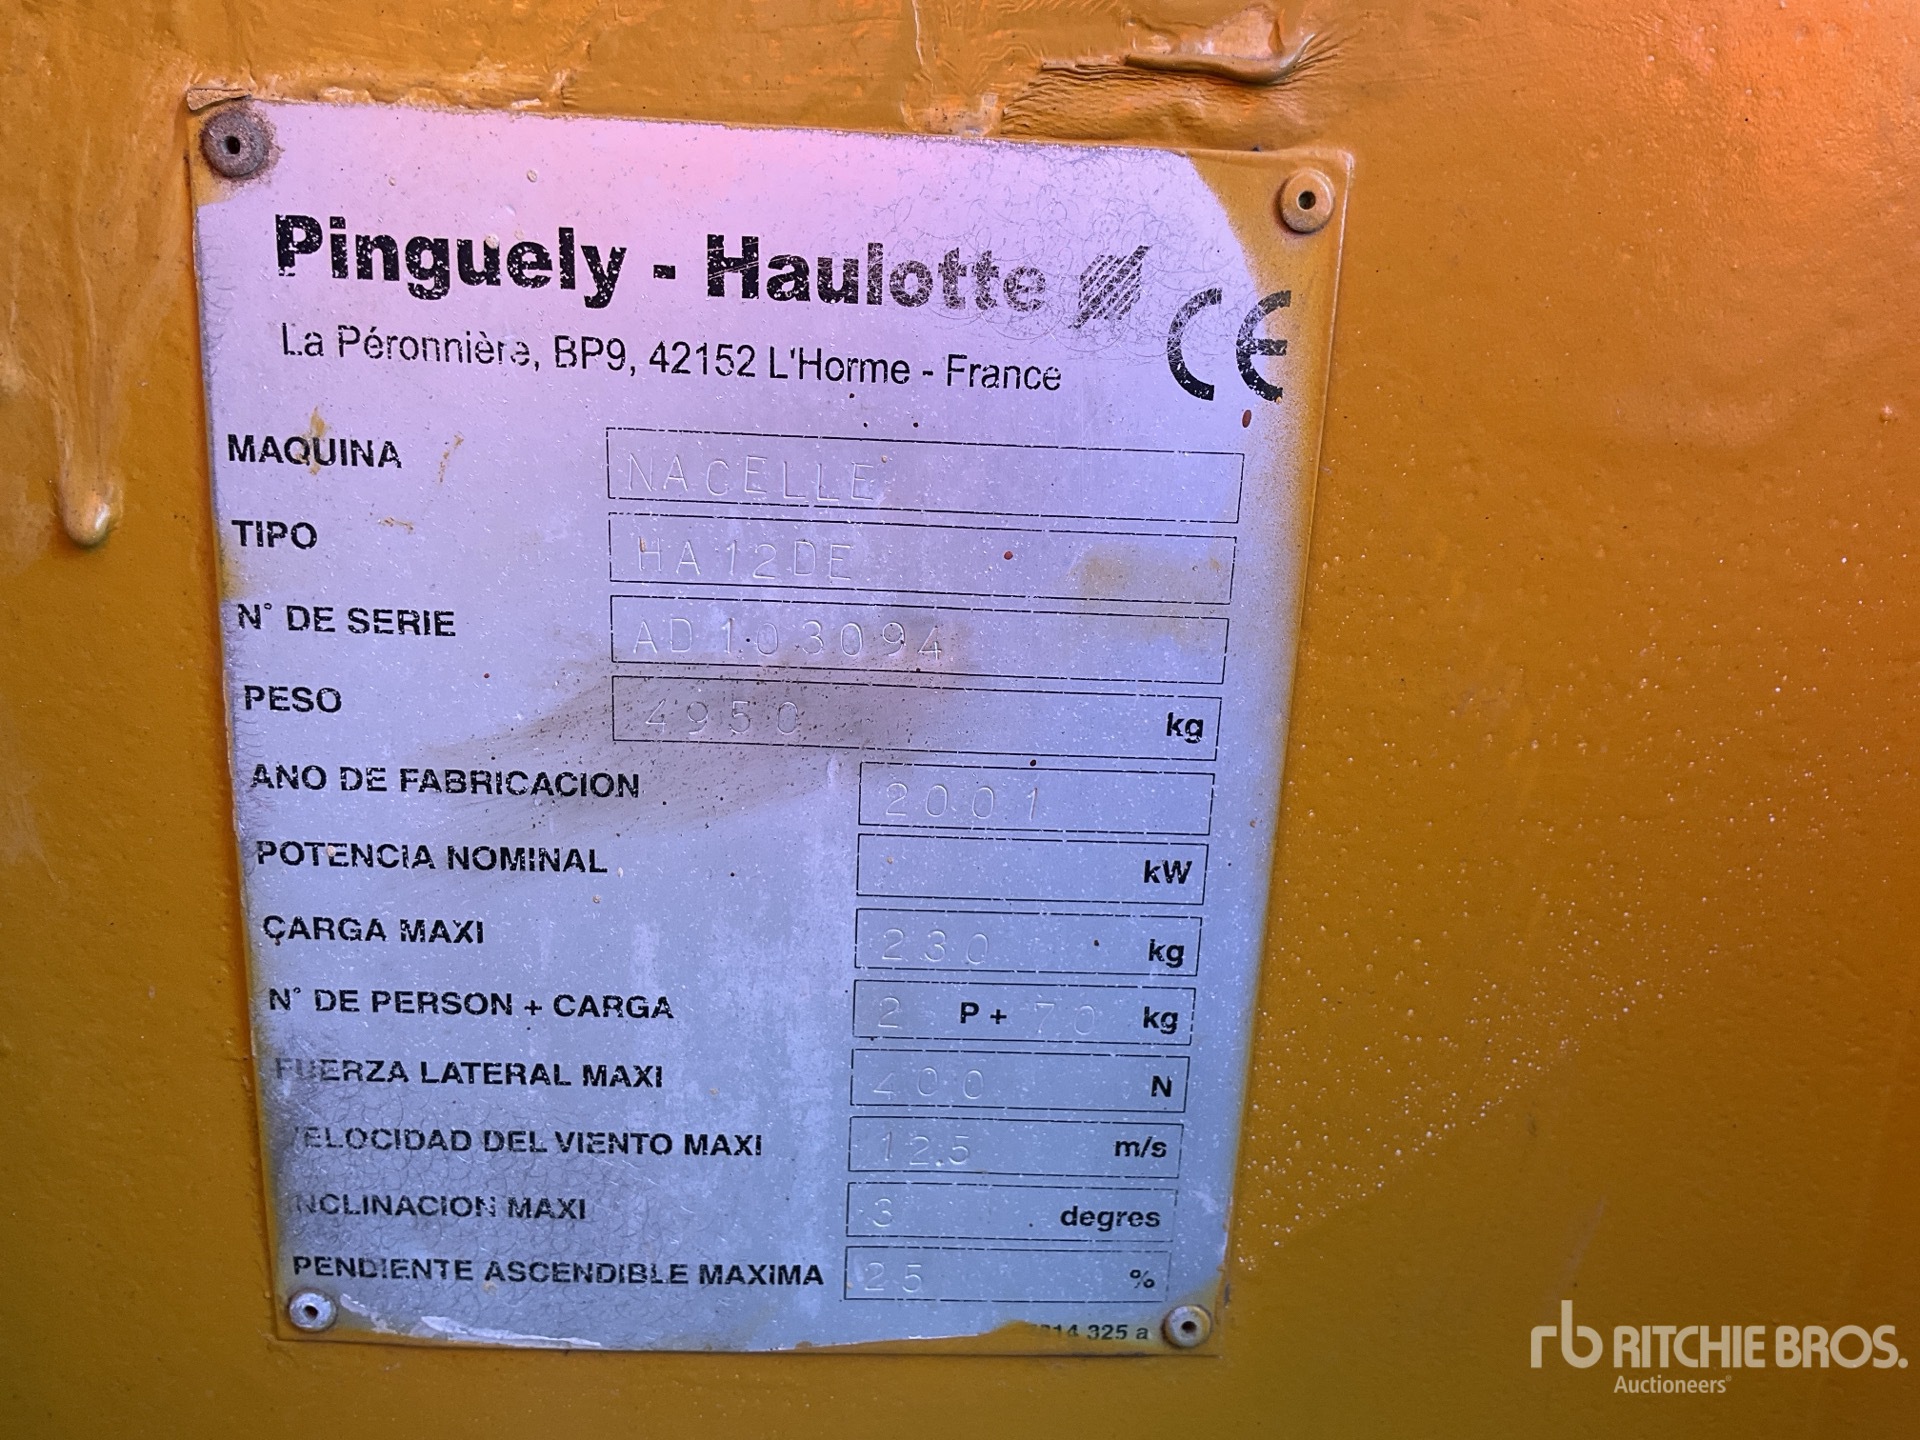 Pinguely - Haulotte
La Péronnière, BP9, 42152 L'Horme - France
CE
MAQUINA NACELLE
TIPO HA12DE
N° DE SERIE AD103094
PESO 4950 kg
ANO DE FABRICACION 2001
POTENCIA NOMINAL kW
CARGA MAXI 230 kg
N° DE PERSON + CARGA 2 P + 70 kg
FUERZA LATERAL MAXI 400 N
VELOCIDAD DEL VIENTO MAXI 12.5 m/s
INCLINACION MAXI 3 degres
PENDIENTE ASCENDIBLE MAXIMA 25 %
325 a
rb RITCHIE BROS.
Auctioneers